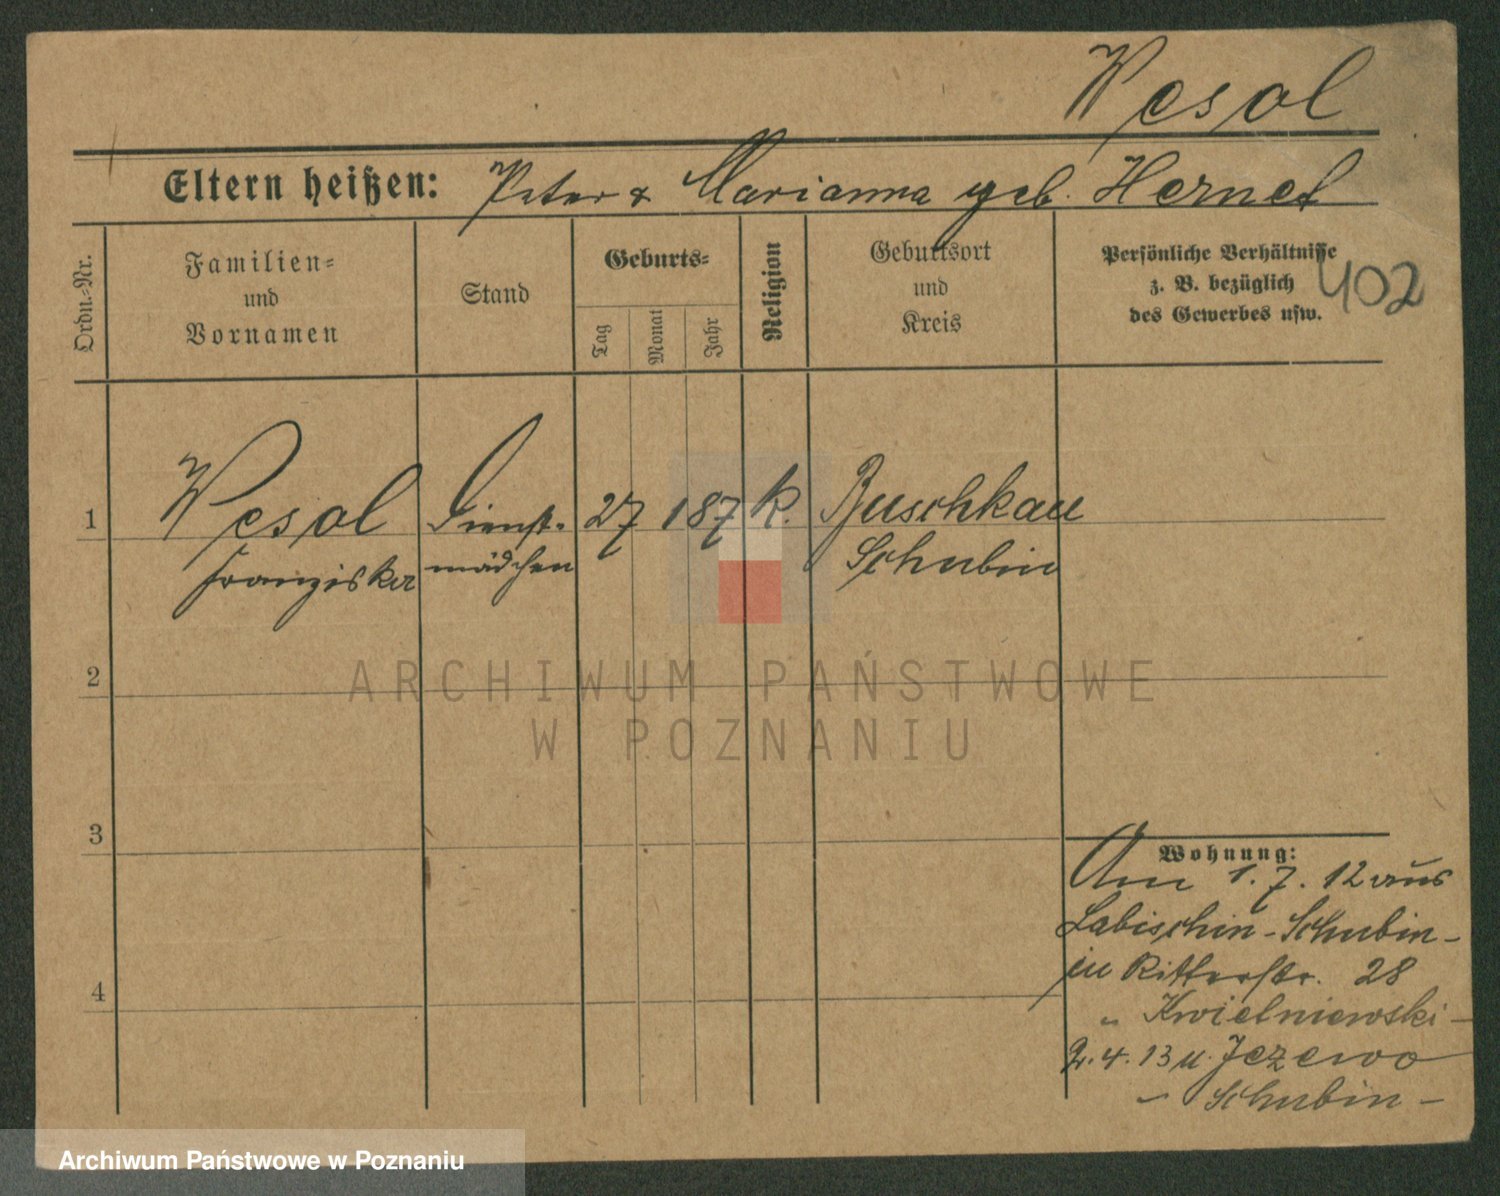 Wesol
Eltern heißen: Peter & Marianna geb. Hernet
Ordn.-Nr.
Familien-
und
Vornamen
Stand
Geburts-
Tag
Monat
Jahr
Religion
Geburtsort
und
Kreis
Persönliche Verhältnisse
z. B. bezüglich
des Gewerbes usw.
402
1 Wesol Dienst- 27 187 k. Buschkau
Franziska mädchen Schubin
2
ARCHIWUM PAŃSTWOWE
W POZNANIU
3
Wohnung:
Am 1. 7. 12 aus
Labischin - Schubin -
in Ritterstr. 28
" Kwielniewski -
2. 4. 13 n. Jezewo
" Schubin -
4
Archiwum Państwowe w Poznaniu